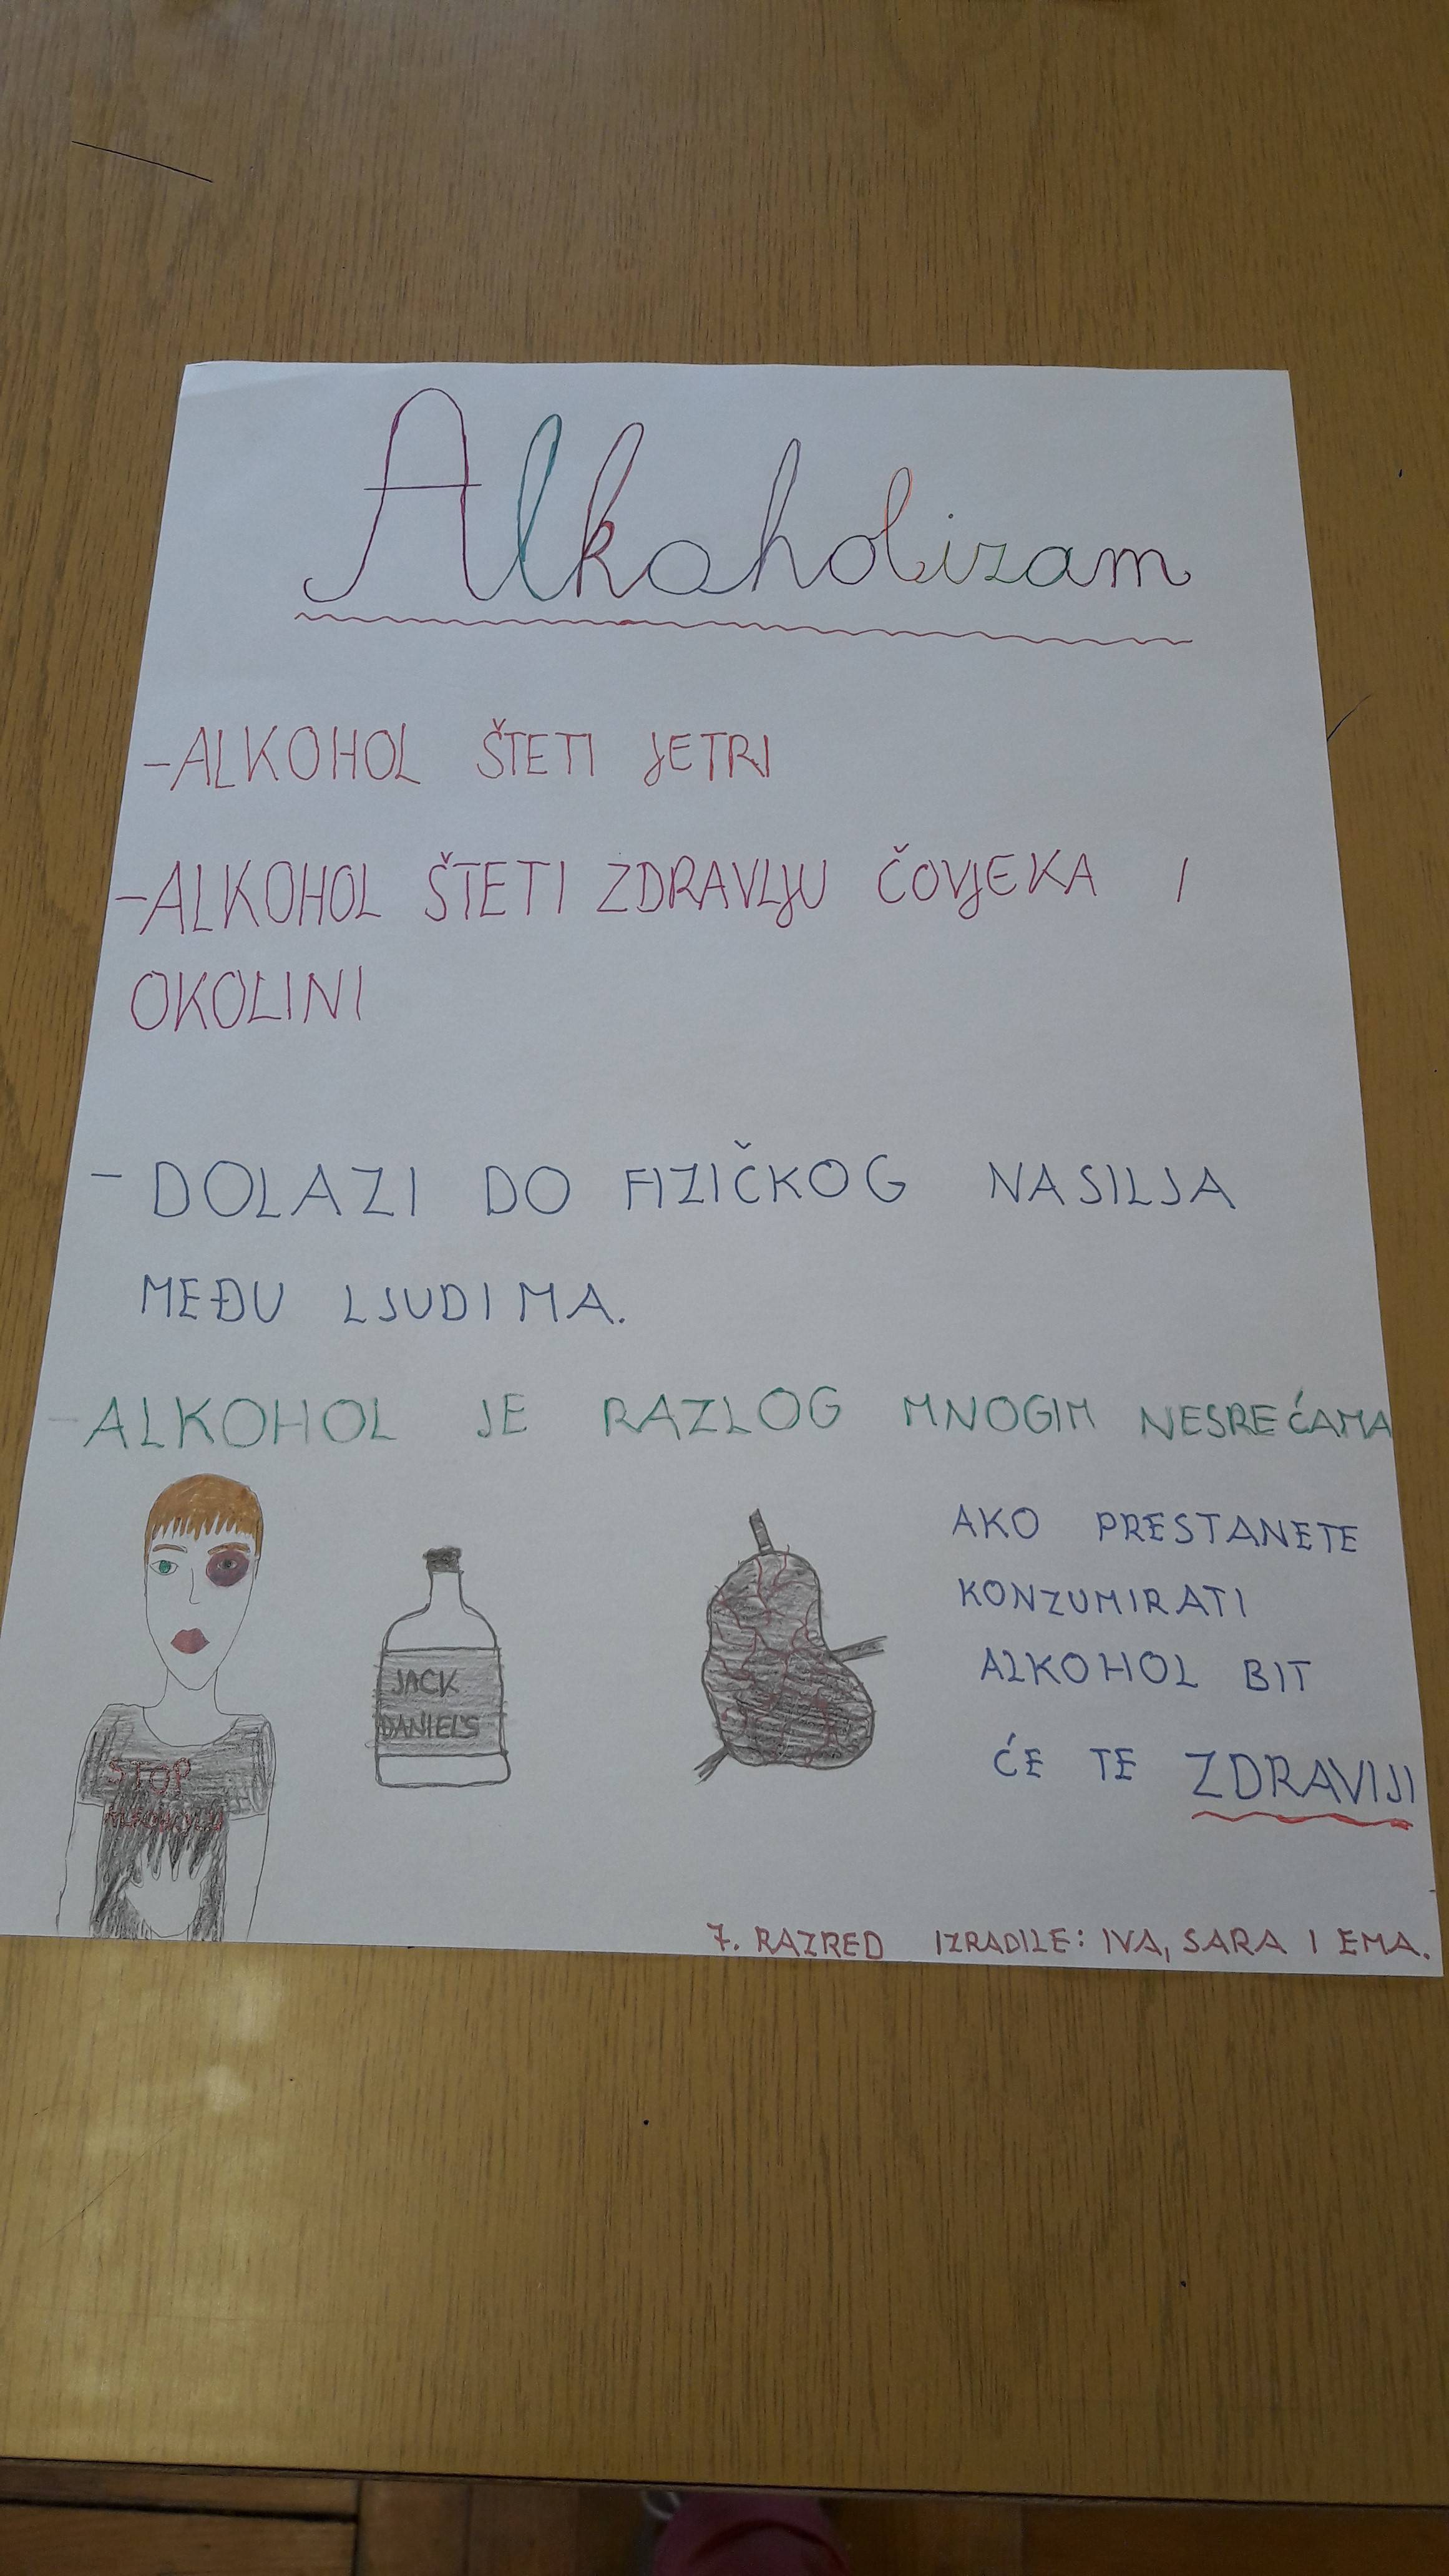 Alkoholizam
-ALKOHOL ŠTETI JETRI
-ALKOHOL ŠTETI ZDRAVLJU ČOVJEKA I
OKOLINI
- DOLAZI DO FIZIČKOG NASILJA
MEĐU LJUDIMA.
-ALKOHOL JE RAZLOG MNOGIM NESREĆAMA
AKO PRESTANETE
KONZUMIRATI
ALKOHOL BIT
ĆE TE ZDRAVIJI
JACK
DANIEL'S
STOP
7. RAZRED IZRADILE: IVA, SARA I EMA.